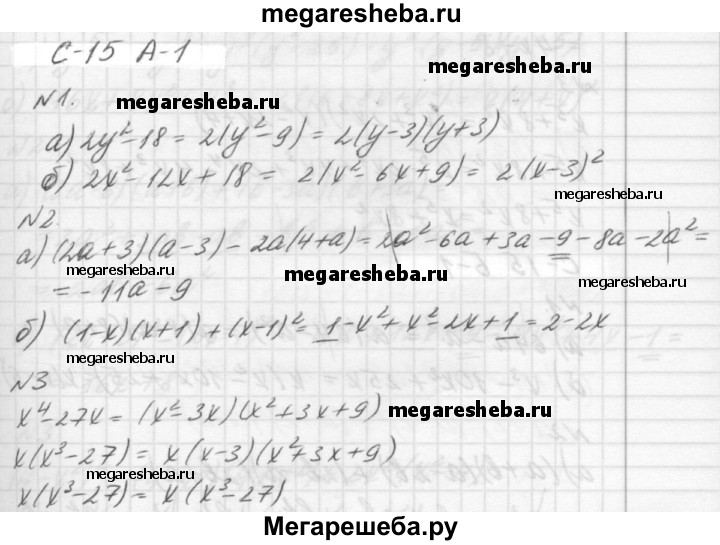 megaresheba.ru
С-15 А-1
megaresheba.ru
№1. megaresheba.ru
а) 2y²-18 = 2(y²-9) = 2(y-3)(y+3)
б) 2x²-12x+18 = 2(x²-6x+9) = 2(x-3)²
megaresheba.ru
№2.
а) (2a+3)(a-3)-2a(4+a)=2a²-6a+3a-9-8a-2a²=
megaresheba.ru megaresheba.ru
= -11a-9
megaresheba.ru
б) (1-x)(x+1)+(x-1)²=1-x²+x²-2x+1=2-2x
megaresheba.ru
№3
x⁴-27x= (x²-3x)(x²+3x+9) megaresheba.ru
x(x³-27)= x(x-3)(x²+3x+9)
megaresheba.ru
x(x³-27)= x(x³-27)
Мегарешеба.ру